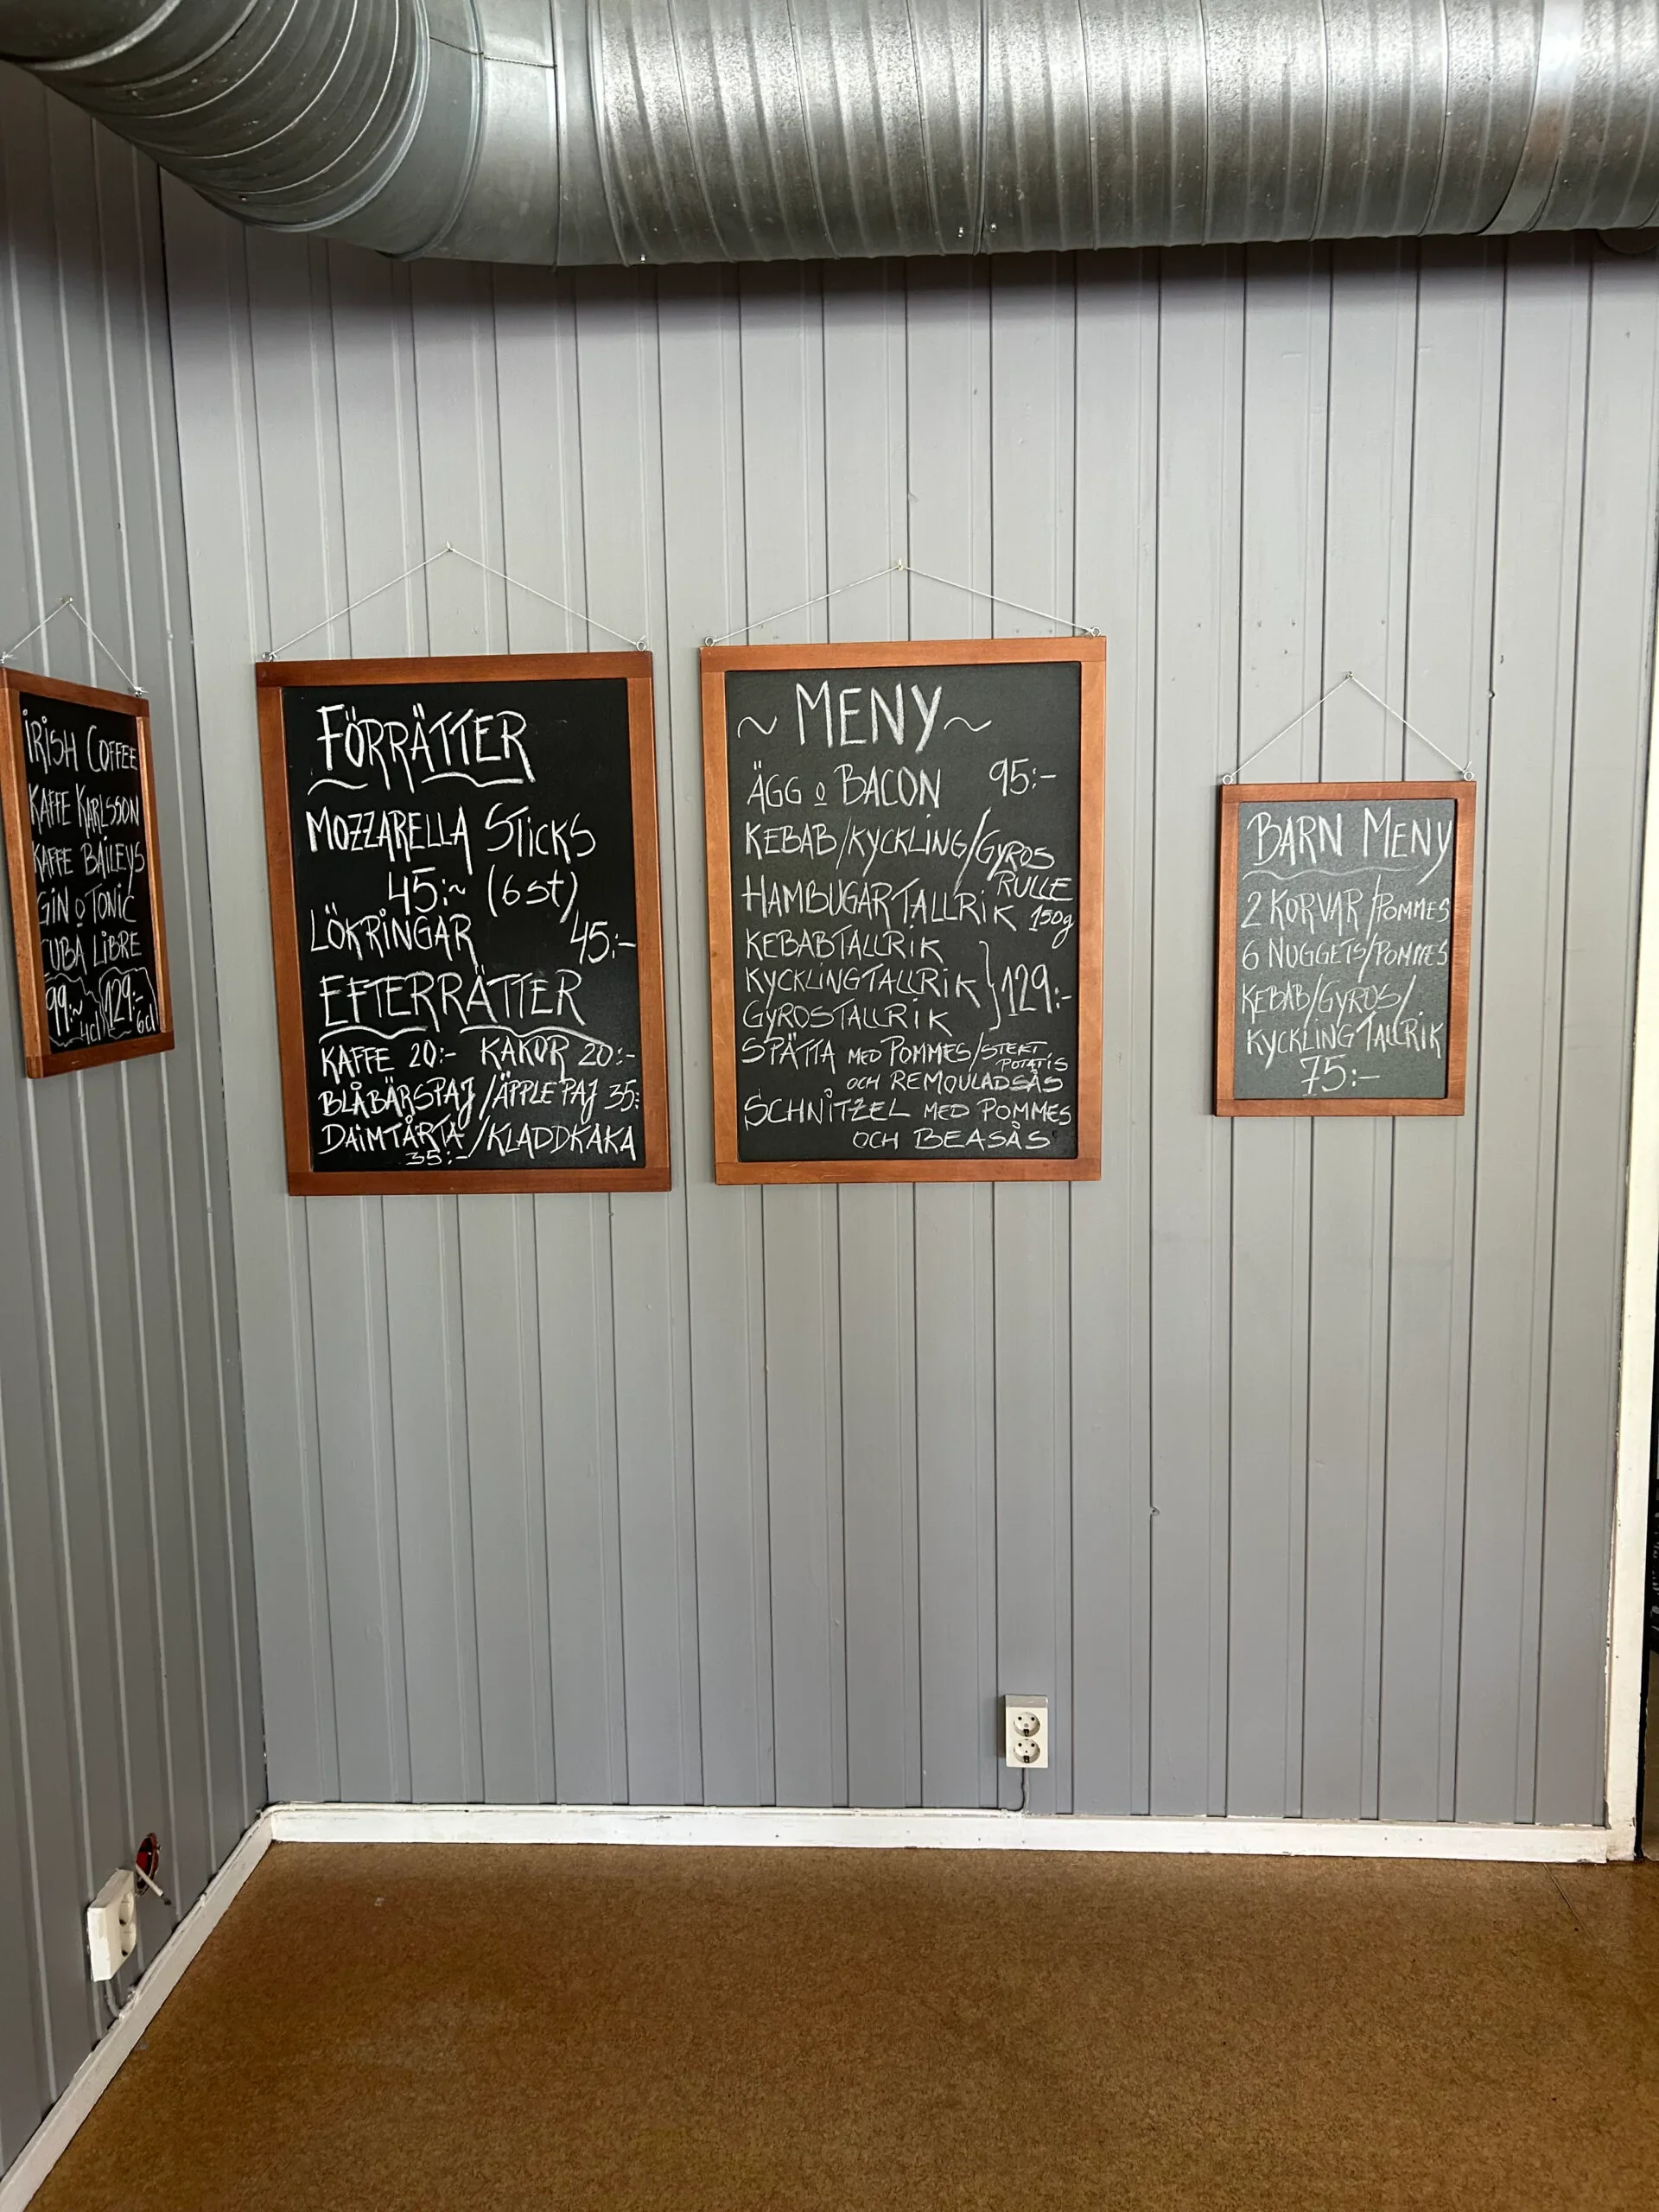 IRISH COFFEE
KAFFE KARLSSON
KAFFE BAILEYS
GIN O TONIC
CUBA LIBRE
99:~ 4cl 129:- 6cl
FÖRRÄTTER
MOZZARELLA STICKS
45:~ (6st)
LÖKRINGAR 45:-
EFTERRÄTTER
KAFFE 20:- KAKOR 20:-
BLÅBÄRSPAJ/ÄPPLEPAJ 35:-
DAIMTÅRTA/KLADDKAKA
35:-
~ MENY ~
ÄGG o BACON 95:-
KEBAB/KYCKLING/GYROS
RULLE
HAMBUGARTALLRIK 150g
KEBABTALLRIK
KYCKLINGTALLRIK } 129:-
GYROSTALLRIK
SPÄTTA MED POMMES/STEKT
POTATIS
OCH REMOULADSÅS
SCHNITZEL MED POMMES
OCH BEASÅS
BARN MENY
2 KORVAR/POMMES
6 NUGGETS/POMMES
KEBAB/GYROS/
KYCKLING TALLRIK
75:-